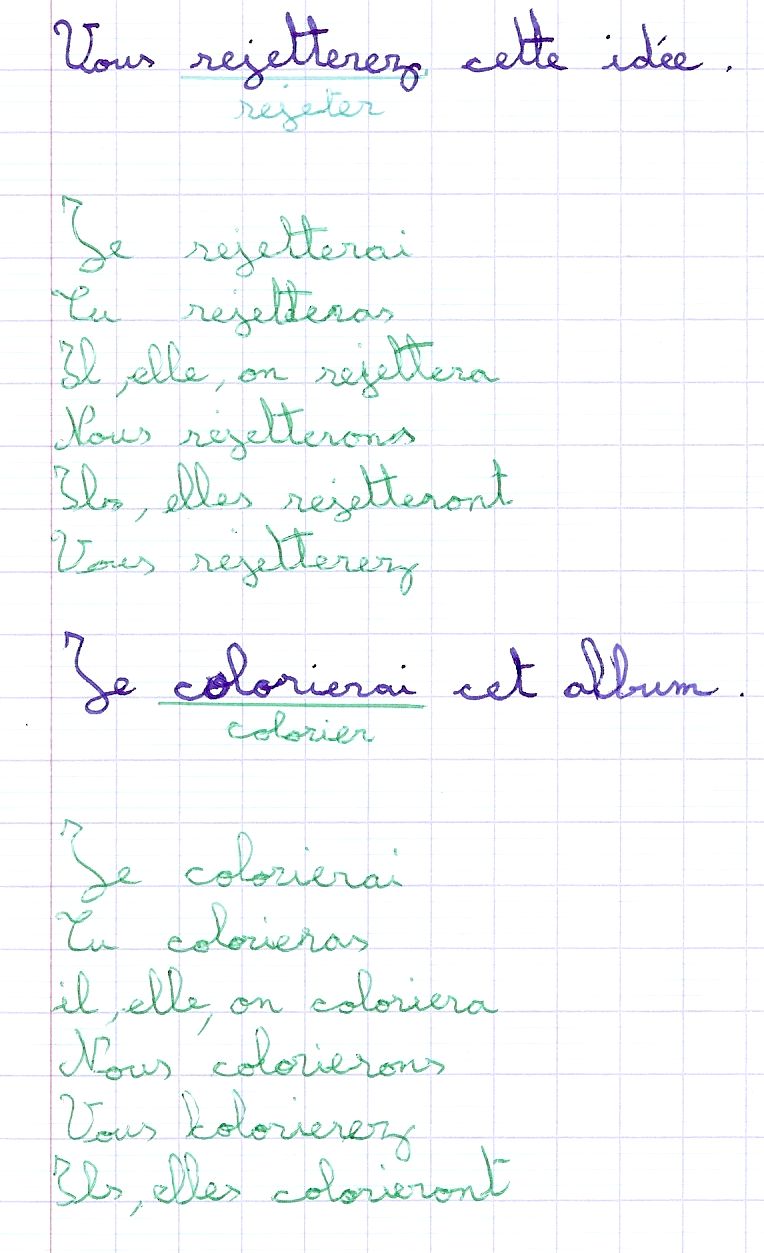 Vous rejetterez cette idée.
rejeter
Je rejetterai
Tu rejetteras
Il, elle, on rejettera
Nous rejetterons
Ils, elles rejetteront
Vous rejetterez
Je colorierai cet album.
colorier
Je colorierai
Tu colorieras
il, elle, on coloriera
Nous colorierons
Vous kolorierez
Ils, elles colorieront